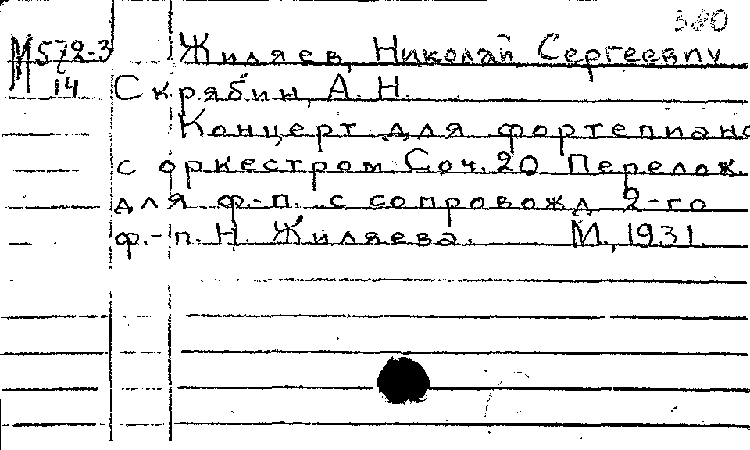 380
М 572-3 Жиляев, Николай Сергеевич
14 Скрябин, А. Н.
Концерт для фортепиано
с оркестром. Соч. 20 Перелож.
для ф.-п. с сопровожд 2-го
ф.-п. Н. Жиляева. М., 1931.